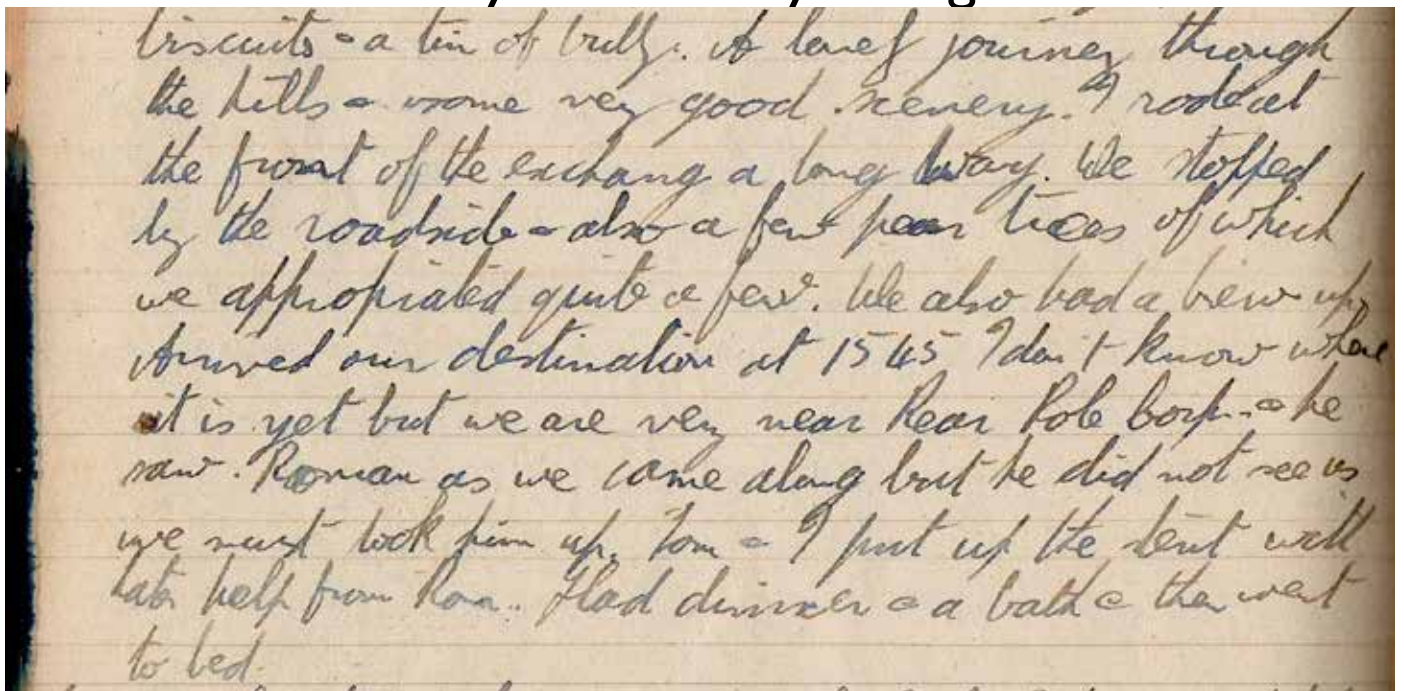 biscuits & a tin of bully. A lovely journey through
the hills & some very good scenery. I rode at
the front of the exchang a long way. We stopped
by the roadside & also a few pear trees of which
we appropriated quite a few. We also had a brew up,
Arrived our destination at 1545 I don't know where
it is yet but we are very near Rear Pole Corp. & he
saw. Roman as we came along but he did not see us
we must look him up. Tom & I put up the tent with
later help from Ron.. Had dinner & a bath & then went
to bed.